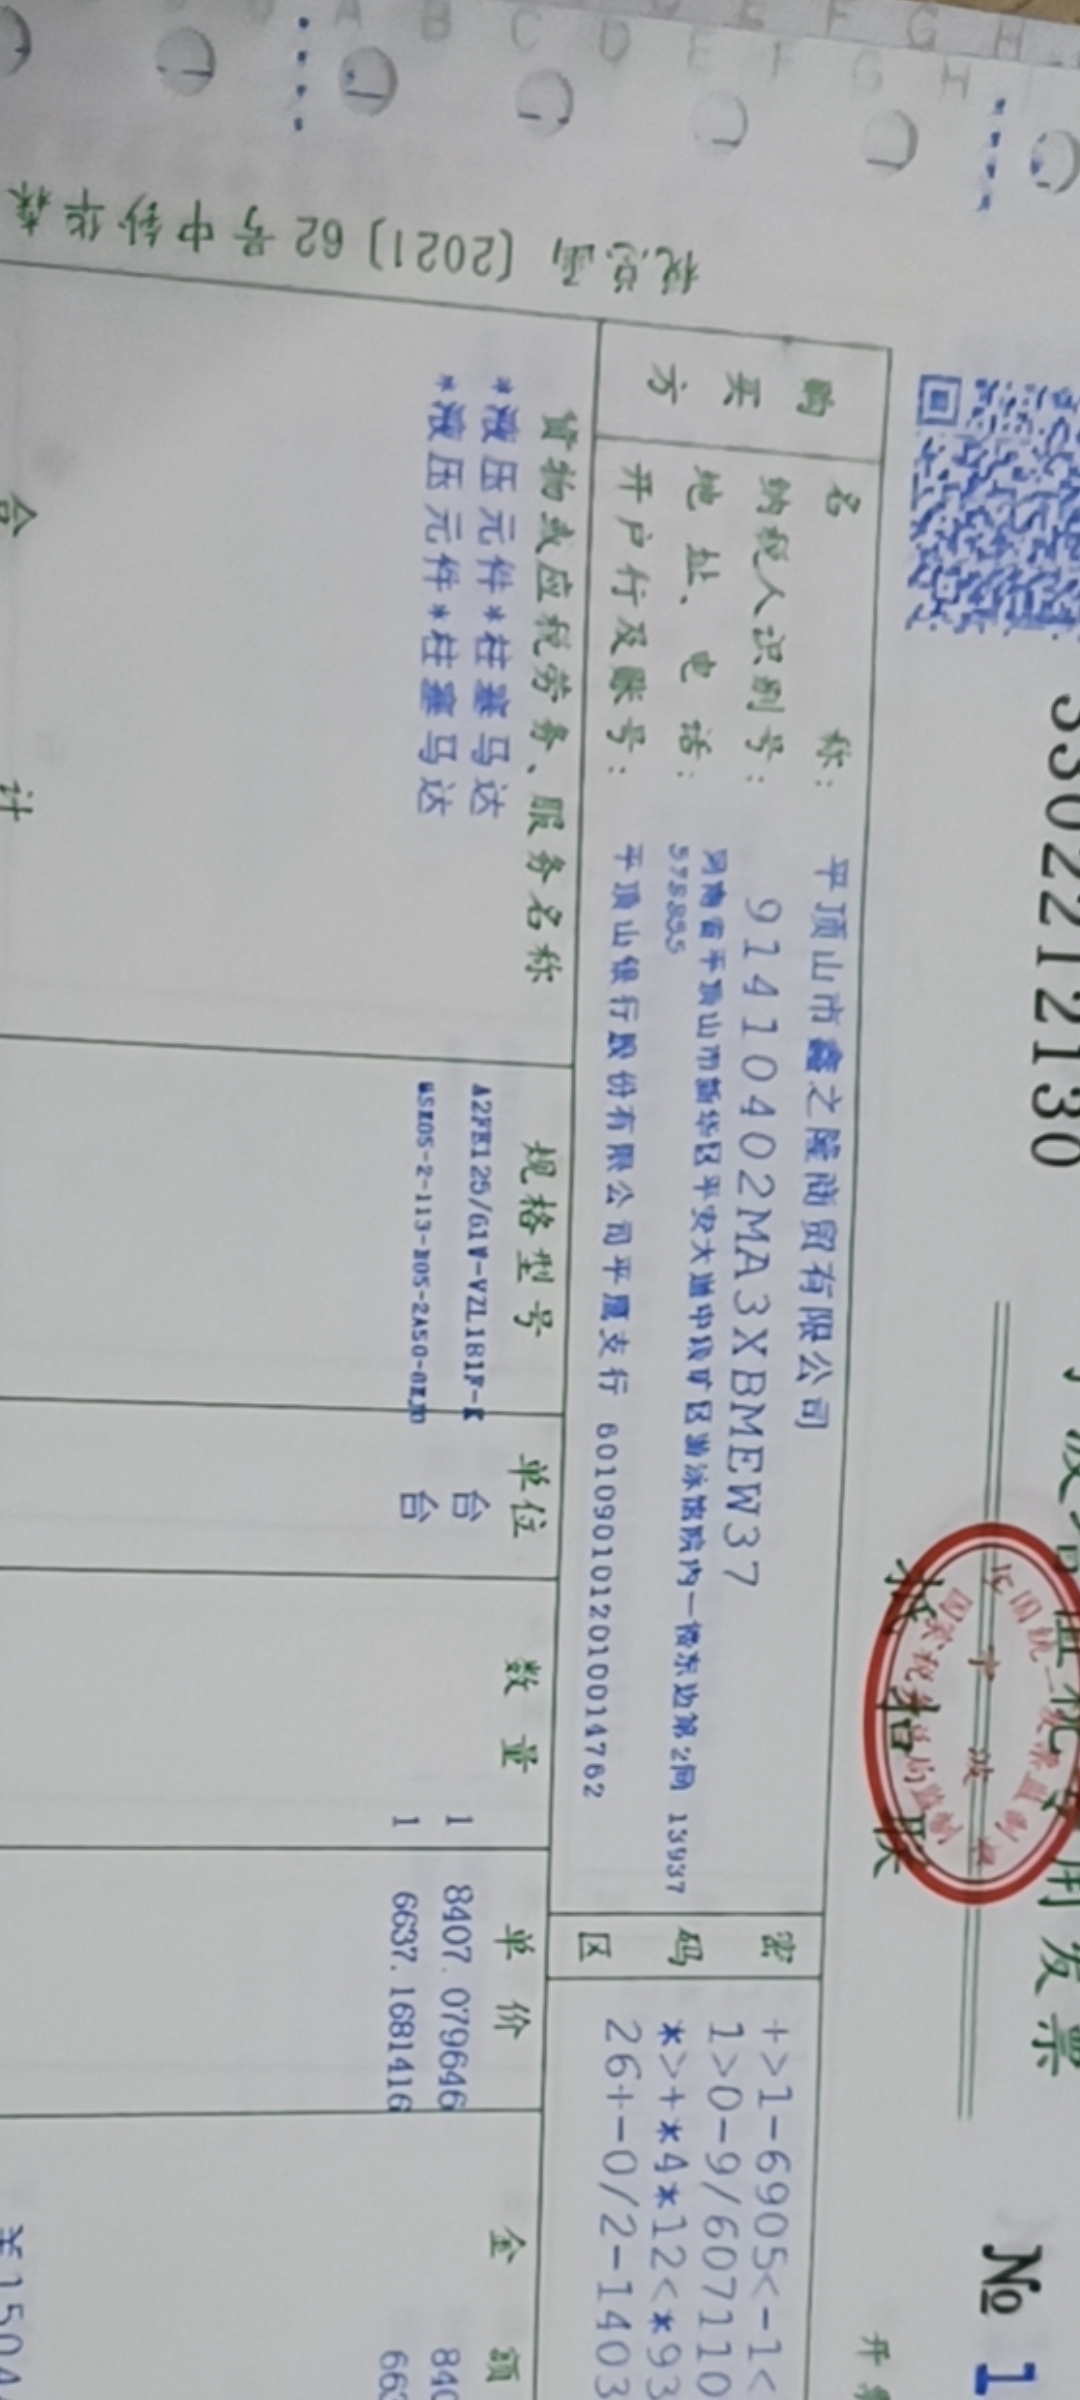 3302212130
发票
抵扣联
№ 1
购买方
名 称: 平顶山市鑫之隆商贸有限公司
纳税人识别号: 91410402MA3XBMEW37
地址、电话: 河南省平顶山市新华区平安大道中段矿区游泳馆院内一楼东边第2间 13937
578855
开户行及账号: 平顶山银行股份有限公司平鹰支行 6010901012010014762
密码区
+>1-6905<-1<
1>0-9/607110
*>+*4*12<*93
26+-0/2-1403
货物或应税劳务、服务名称 规格型号 单位 数量 单价 金额
*液压元件*柱塞马达 A2FE125/61W-VZL181F-K 台 1 8407.079646 840
*液压元件*柱塞马达 台 1 6637.1681416 663
合 计 ¥1504
税总函〔2021〕62号中钞华森